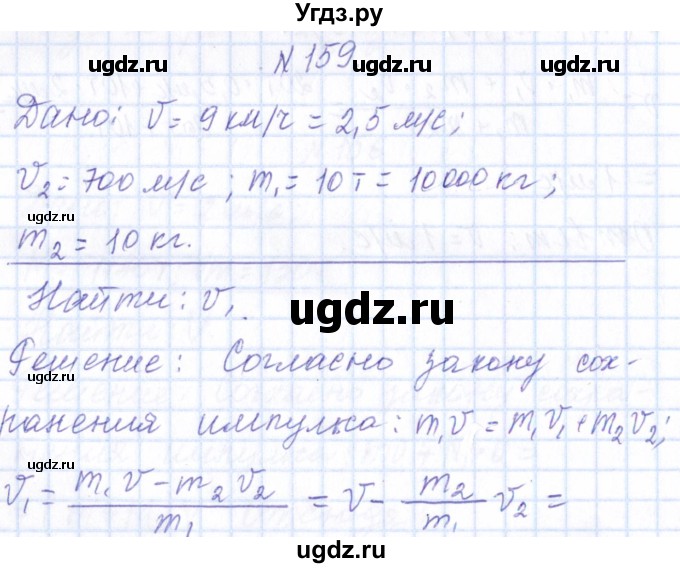 Угдз.ру
ugdz.ru ugdz.ru
N 159
Дано: V = 9 км/ч = 2,5 м/с;
V₂ = 700 м/с; m₁ = 10 т = 10000 кг;
ugdz.ru ugdz.ru
m₂ = 10 кг.
Найти: V₁.
ugdz.ru
ugdz.ru
Решение: Согласно закону сох-
ugdz.ru ugdz.ru
ранения импулка: m₁V = m₁V₁ + m₂V₂;
ugdz.ru ugdz.ru
V₁ = (m₁V − m₂V₂)/m₁ = V − m₂/m₁ V₂ =
ugdz.ru